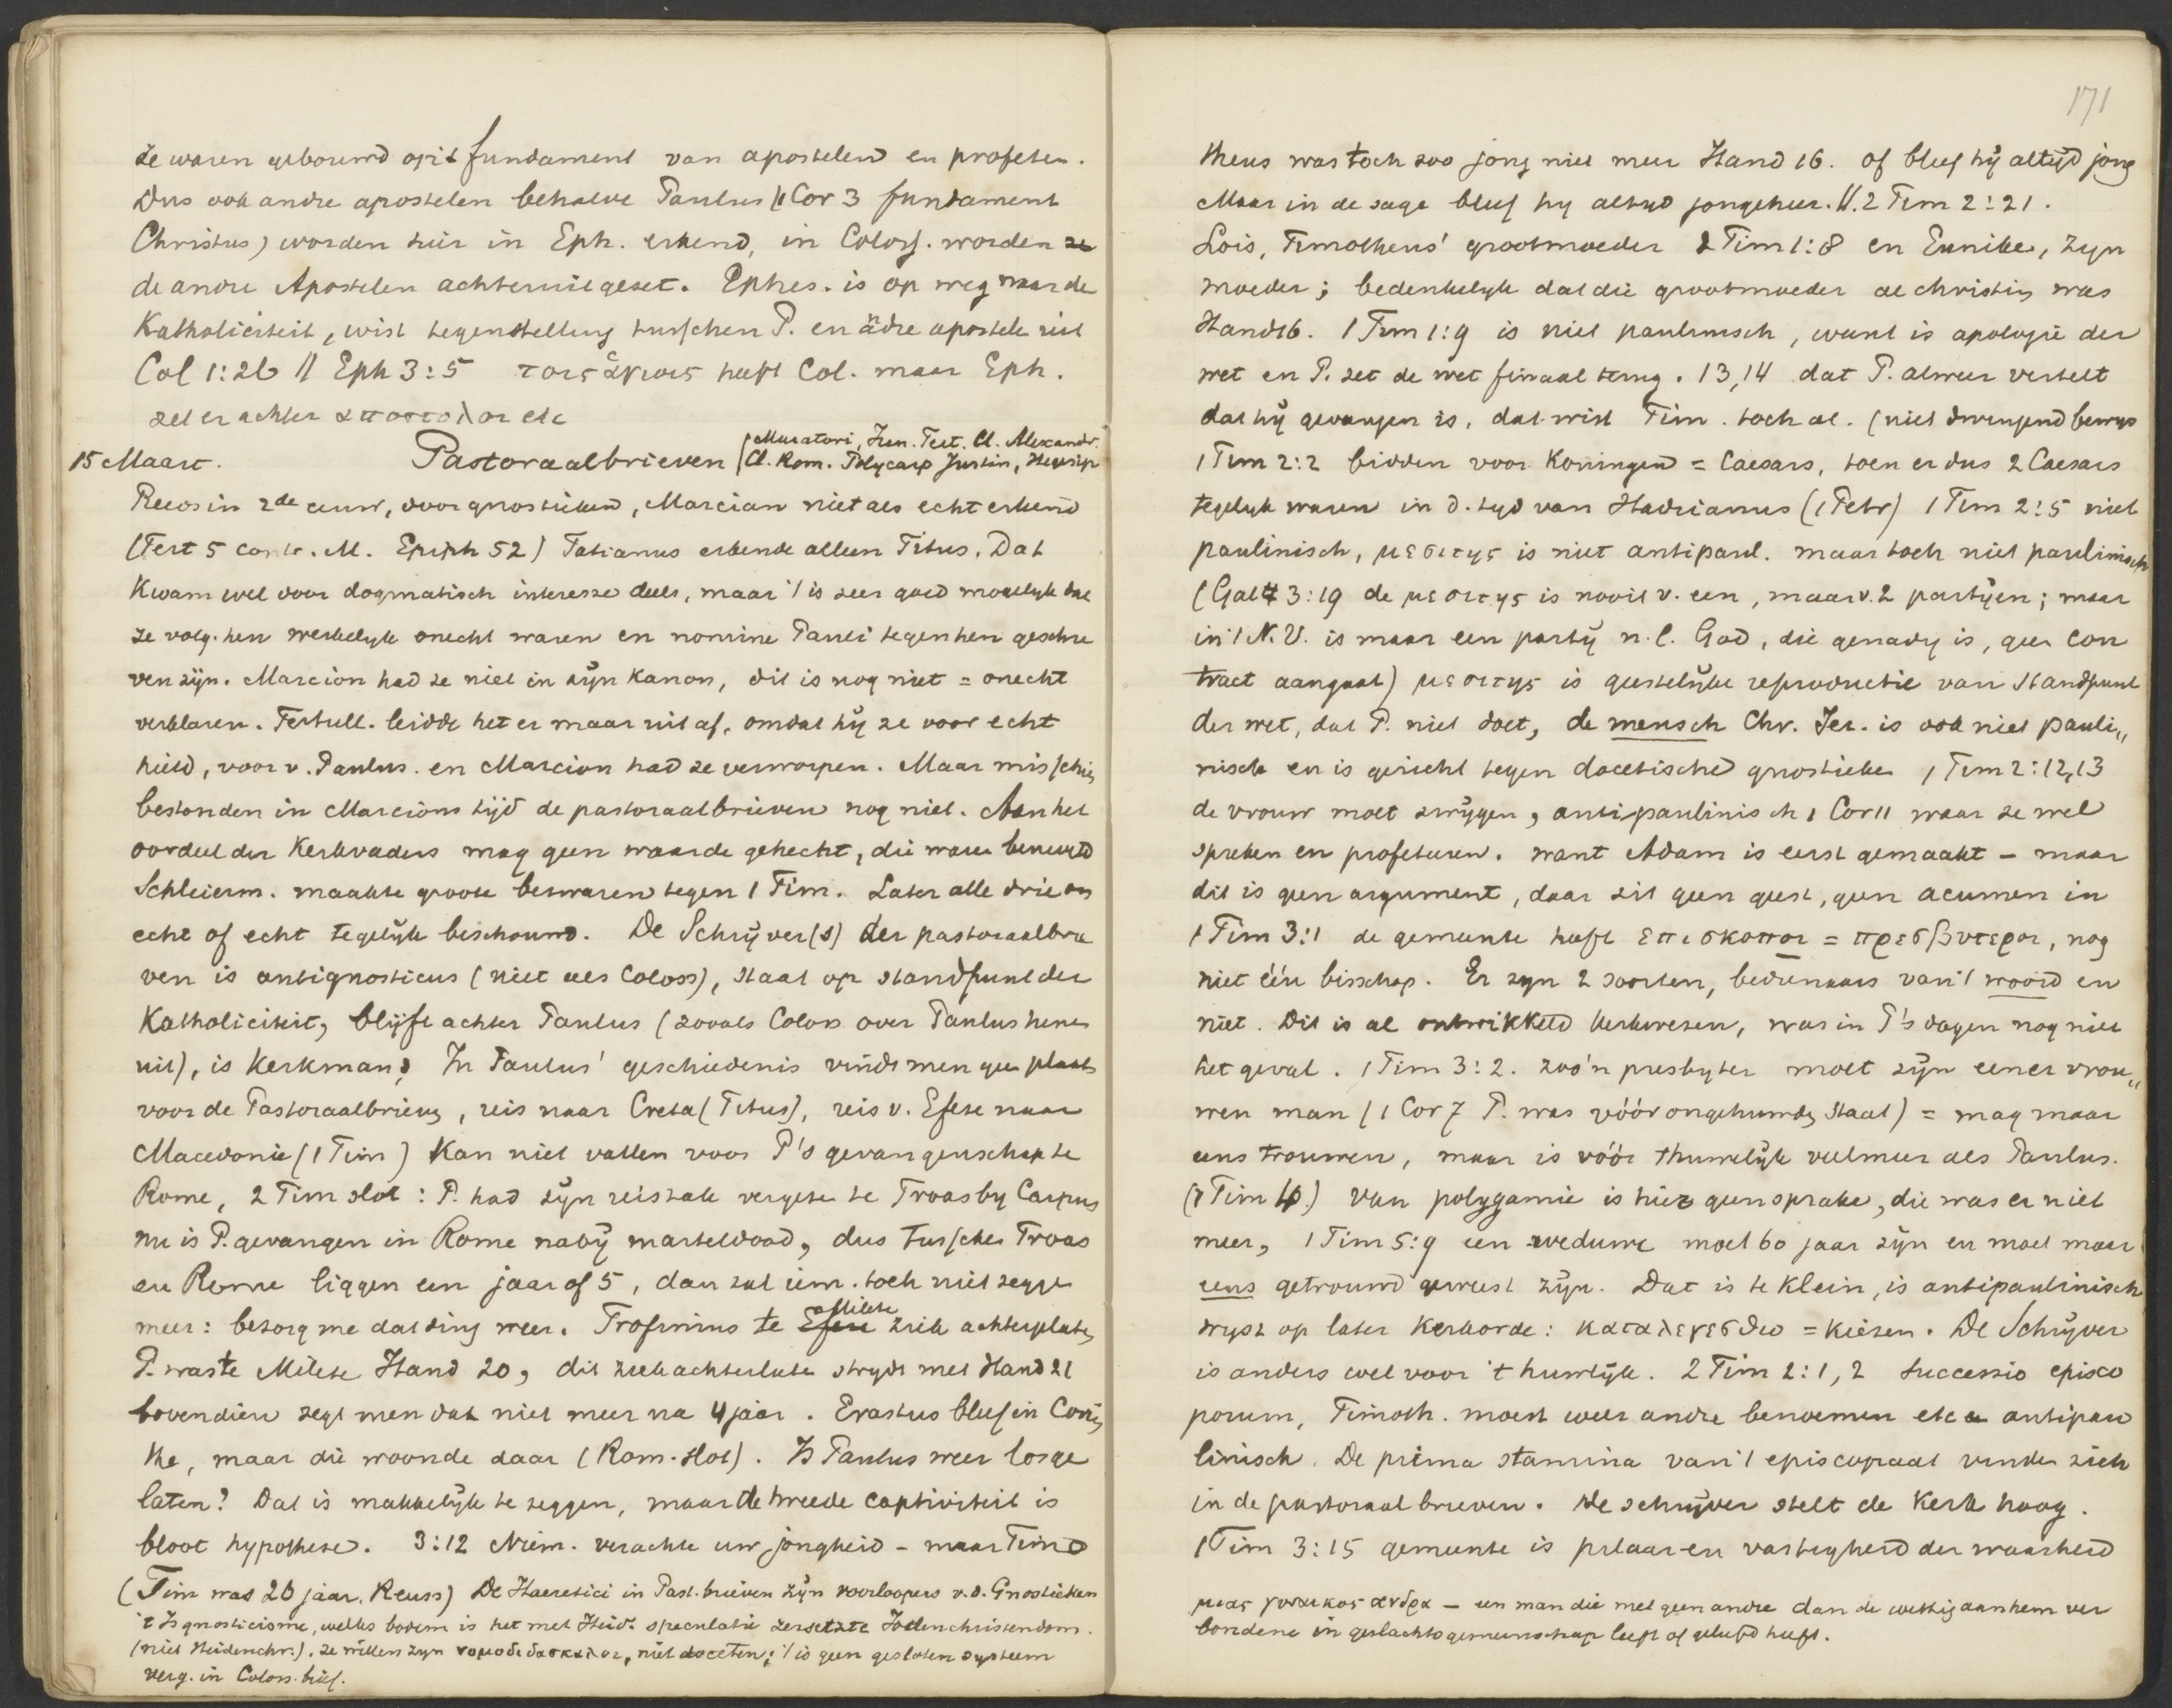 ze waren gebouwd op 't fundament van apostelen en profeten.
Dus ook andre apostelen behalve Paulus (1 Cor 3 fundament
Christus) worden hier in Eph. erkend, in Coloss. worden ze
de andre Apostelen achteruitgezet. Ephes. is op weg naar de
Katholiciteit, wist tegenstelling tusschen P. en andre apostele uit
Col 1:26 // Eph 3:5 τοις ἁγιοις heeft Col. maar Eph.
zet er achter αποστολοι etc
15 Maart. Pastoraalbrieven (Muratori, Iren. Tert. Cl. Alexandr.
Cl. Rom. Polycarp Justin, Hegesip
Reeds in 2de eeuw, door gnostieken, Marcian niet als echt erkend
(Tert 5 contr. M. Epiph 52) Tatianus erkende alleen Titus. Dat
kwam wel door dogmatisch interesse deels, maar 't is zeer goed mogelyk dat
ze volg. hen werkelyk onecht waren en nomine Pauli tegen hen geschre
ven zijn. Marcion had ze niet in zijn Kanon, dit is nog niet = onecht
verklaren. Tertull. leidde het er maar uit af, omdat hij ze voor echt
hield, voor v. Paulus. en Marcion had ze verworpen. Maar misschien
bestonden in Marcions tijd de pastoraalbrieven nog niet. Aan het
oordeel der Kerkvaders mag geen waarde gehecht, die waren beneveld
Schleierm. maakte groote bezwaren tegen 1 Tim. Later alle drie on
echt of echt tegelijk beschouwd. De Schrijver(s) der pastoraalbrie
ven is antignosticus (niet als Coloss), staat op standpunt der
Katholiciteit, blijft achter Paulus (zooals Coloss over Paulus henen
uit), is Kerkman, In Paulus' geschiedenis vindt men geen plaats
voor de Pastoraalbrieven, reis naar Creta (Titus), reis v. Efese naar
Macedonie (1 Tim) kan niet vallen voor P's gevangenschap te
Rome, 2 Tim slot: P. had zijn reiszak vergeten te Troas by Carpus
nu is P. gevangen in Rome naby marteldood, dus tusschen Troas
en Rome liggen een jaar of 5, dan zal iem. toch niet zeggen
meer: bezorg me dat ding weer. Trofimus te Efese Milete ziek achtergelaten
P. was te Milete Hand 20, dit ziek achterlaten strydt met Hand 21
bovendien zegt men dat niet meer na 4 jaar. Erastus bleef in Corin
the, maar die woonde daar (Rom. slot). Is Paulus weer losge
laten? Dat is makkelijk te zeggen, maar de tweede captiviteit is
bloot hypothese. 3:12 Niem. verachte uw jongheid – maar Timo
(Tim was 20 jaar. Reuss) De Haeretici in Past. brieven zijn voorloopers v. d. Gnostieken
't Is gnosticisme, welks bodem is het met Heid. speculatie zersetzte Jodenchristendom.
(niet Heidenchr.). ze willen zyn νομοδιδασκαλοι, niet doceten; 't is geen gesloten systeem
verg. in Coloss. brief.
171
theus was toch zoo jong niet meer Hand 16. of bleef hij altijd jong
Maar in de sage bleef hy altyd jongeheer. V. 2 Tim 2:21.
Lois, Timotheus' grootmoeder 2 Tim 1:8 en Eunike, zyn
moeder; bedenkelyk dat die grootmoeder al christin was
Hand 16. 1 Tim 1:9 is niet paulinisch, want is apologie der
wet en P. zet de wet finaal terug. 13, 14 dat P. alweer vertelt
dat hij gevangen is, dat wist Tim. toch al. (niet dwingend bewys
1 Tim 2:2 bidden voor Koningen = Caesars, toen er dus 2 Caesars
tegelyk waren in d. tyd van Hadrianus (1 Petr) 1 Tim 2:5 niet
paulinisch, μεσιτης is niet antipaul. maar toch niet paulinisch
(Gal 3:19 de μεσιτης is nooit v. een, maar v. 2 partijen; maar
in 't N. V. is maar een partij n. l. God, die genadig is, geen con
tract aangaat) μεσιτης is geestelijke reproductie van standpunt
der wet, dat P. niet doet, de mensch Chr. Jez. is ook niet pauli„
nisch en is gericht tegen docetische gnostieken 1 Tim 2:12,13
de vrouw moet zwijgen, antipaulinisch 1 Cor 11 waar ze wel
spreken en profeteren. want Adam is eerst gemaakt – maar
dit is geen argument, daar zit geen geest, geen acumen in
1 Tim 3:1 de gemeente heeft επισκοποι = πρεσβυτεροι, nog
niet één bisschop. Er zyn 2 soorten, bedienaars van 't woord en
niet. Dit is al ontwikkeld kerkwezen, was in P's dagen nog niet
het geval. 1 Tim 3:2. zoo'n presbyter moet zijn eener vrou„
wen man (1 Cor 7 P. was vóór ongehuwden staat) = mag maar
eens trouwen, maar is vóór 't huwelijk veelmeer als Paulus.
(1 Tim 4.) Van polygamie is hier geen sprake, die was er niet
meer, 1 Tim 5:9 een weduwe moet 60 jaar zijn en moet maar
eens getrouwd geweest zijn. Dat is te klein, is antipaulinisch
wyst op later Kerkorde: καταλεγεσθω = kiezen. De Schrijver
is anders wel voor 't huwlijk. 2 Tim 2:1, 2 successio episco
porum, Timoth. moest weer andre benoemen etc antipau
linisch. De prima stamina van 't episcopaat vinden zich
in de pastoraalbrieven. De schrijver stelt de Kerk hoog.
1 Tim 3:15 gemeente is pilaar en vastigheid der waarheid
μιας γυναικος ανδρα – een man die met geen andre dan de wettig aan hem ver
bondene in geslachtsgemeenschap leeft of geleefd heeft.